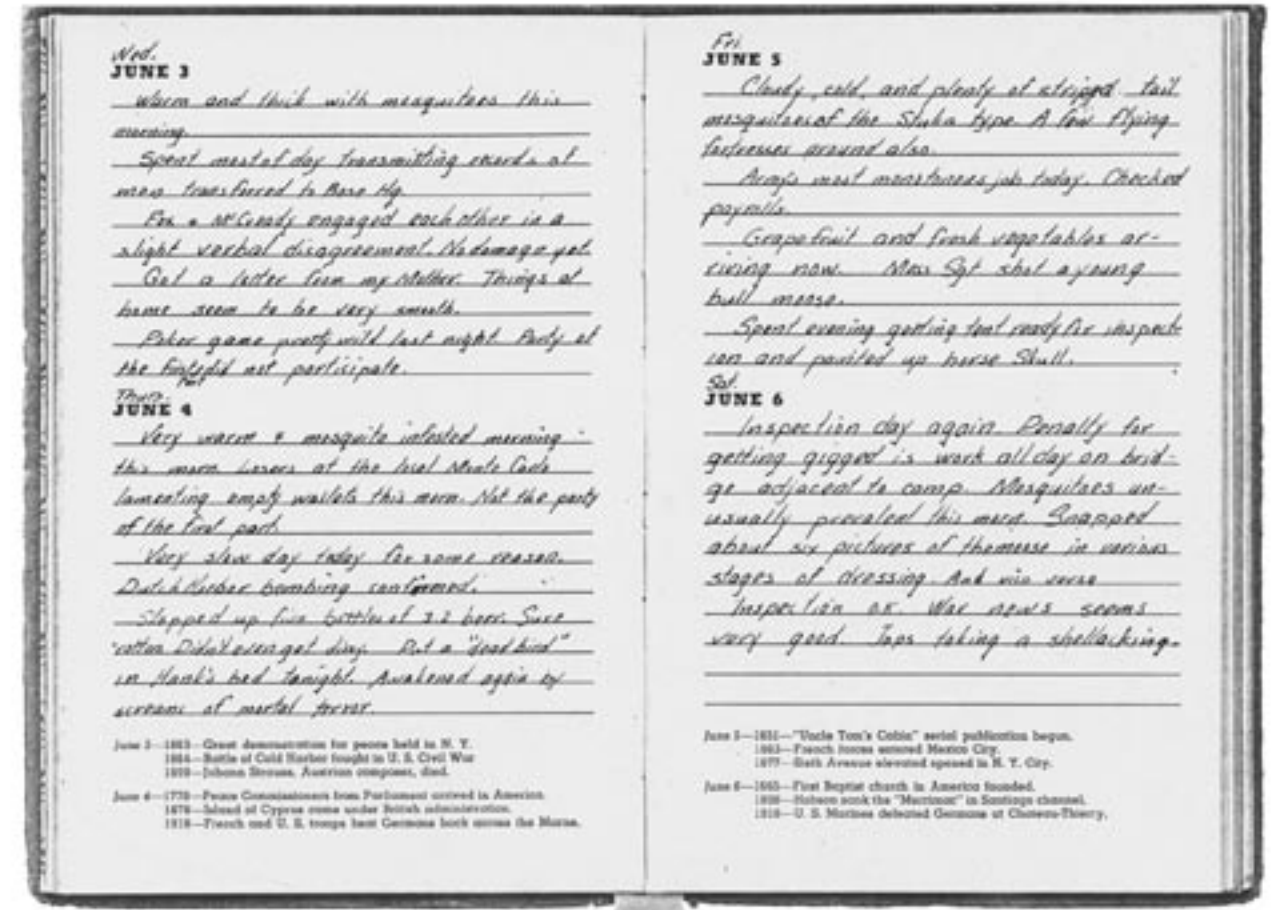 Wed.
JUNE 3
Warm and thick with mosquitoes this
morning.
Spent most of day transmitting records of
men transferred to Base Hq.
Fox & McCready engaged each other in a
slight verbal disagreement. No damage yet.
Got a letter from my Mother. Things at
home seem to be very smooth.
Poker game pretty wild last night. Party of
the first part did not participate.
Thurs.
JUNE 4
Very warm & mosquito infested morning
this morn. Losers at the local Monte Carlo
lamenting empty wallets this morn. Not the party
of the first part.
Very slow day today for some reason.
Dutch Harbor bombing confirmed.
Slopped up five bottles of 3.2 beer. Sure
rotten. Didn't even get dizzy. Put a "dead bird"
in Hank's bed tonight. Awakened again by
screams of mortal terror.
June 3—1863—Great demonstration for peace held in N. Y.
1864—Battle of Cold Harbor fought in U. S. Civil War
1899—Johann Strauss, Austrian composer, died.
June 4—1778—Peace Commissioners from Parliament arrived in America.
1878—Island of Cyprus came under British administration.
1918—French and U. S. troops beat Germans back across the Marne.
Fri.
JUNE 5
Cloudy, cold, and plenty of stripped tail
mosquitoes of the Stuka type. A few flying
fortresses around also.
Army's most monotonous job today. Checked
payrolls.
Grapefruit and fresh vegetables ar-
riving now. Mess Sgt shot a young
bull moose.
Spent evening getting tent ready for inspect-
ion and painted up horse Skull.
Sat.
JUNE 6
Inspection day again. Penalty for
getting gigged is work all day on brid-
ge adjacent to camp. Mosquitoes un-
usually prevalent this morn. Snapped
about six pictures of the moose in various
stages of dressing. And vice versa
Inspection OK. War news seems
very good. Japs taking a shellacking.
June 5—1851—"Uncle Tom's Cabin" serial publication begun.
1863—French forces entered Mexico City.
1877—Sixth Avenue elevated opened in N. Y. City.
June 6—1665—First Baptist church in America founded.
1898—Hobson sank the "Merrimac" in Santiago channel.
1918—U. S. Marines defeated Germans at Chateau-Thierry.